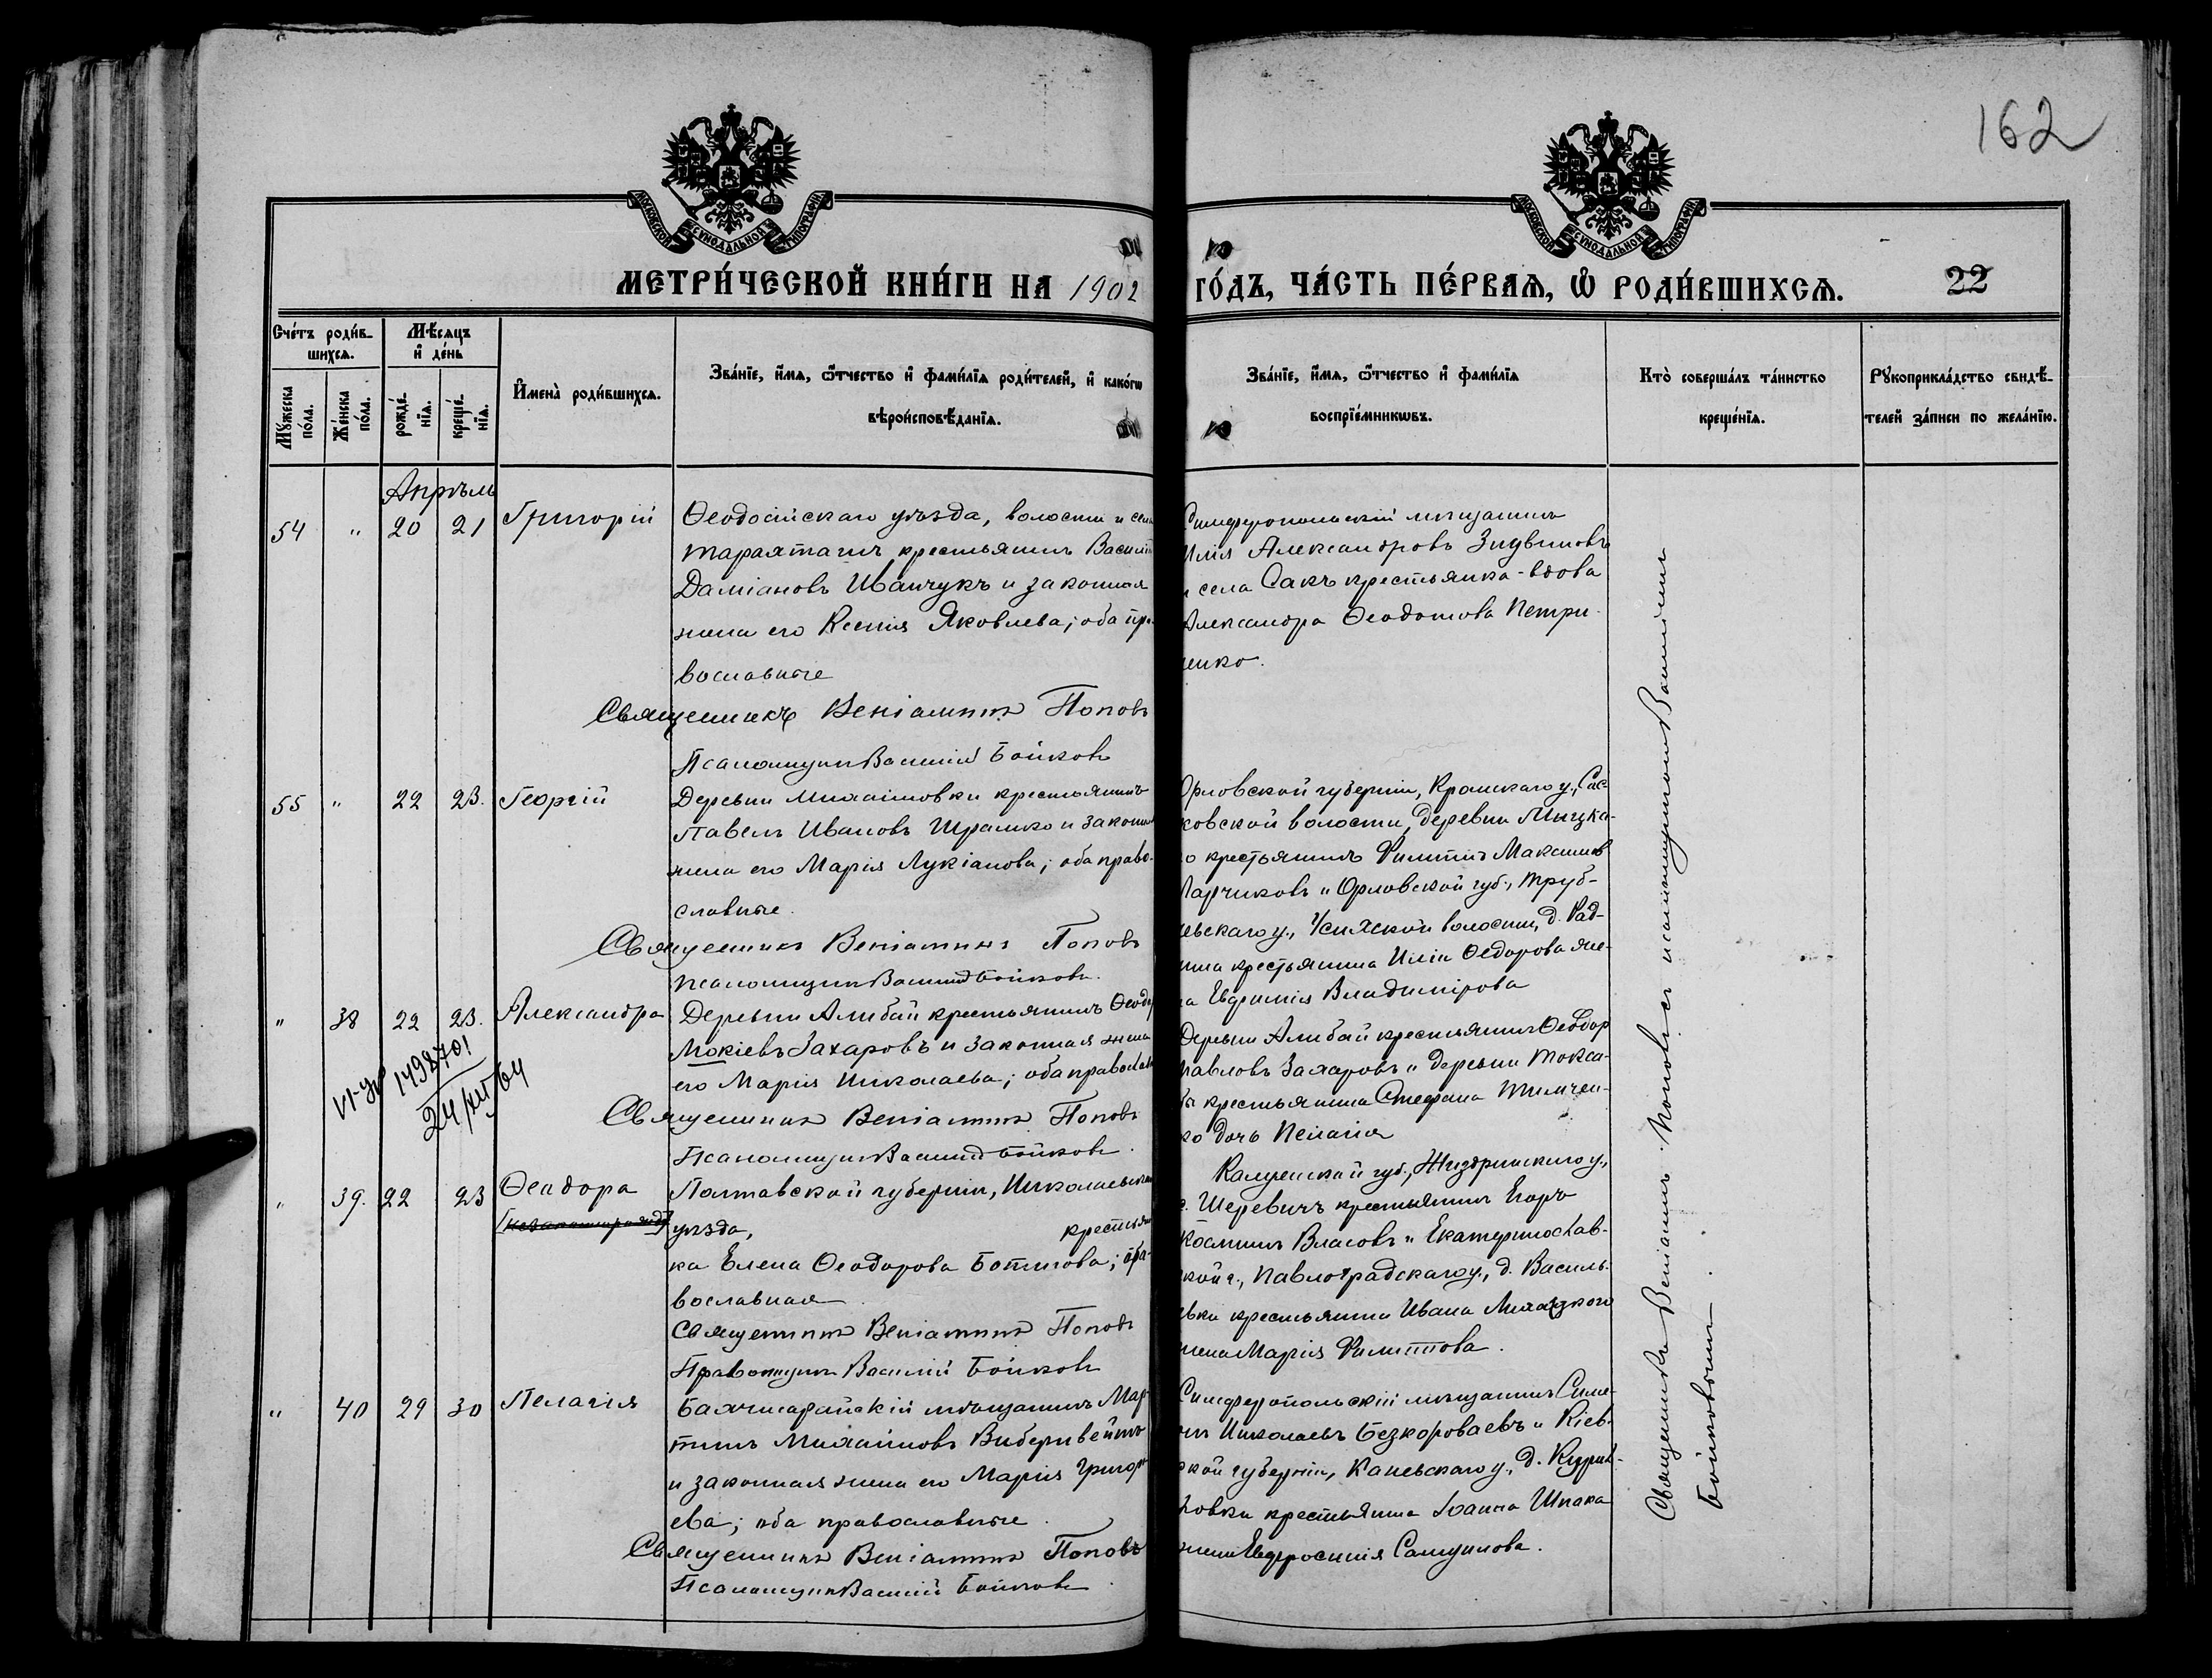 162
МОСКОВСКОЙ СѴНОДАЛЬНОЙ ТИПОГРАФІИ
МОСКОВСКОЙ СѴНОДАЛЬНОЙ ТИПОГРАФІИ
МЕТРИ́ЧЕСКОЙ КНИ́ГИ НА 1902 ГО́ДЪ, ЧА́СТЬ ПЕ́РВАѦ, Ѡ РОДИ́ВШИХСѦ. 22
Сче́тъ роди́вшихсѧ.
Мꙋ́жеска по́ла.
Же́нска по́ла.
Мѣ́сѧцъ и҆ де́нь
рожде́нїѧ.
креще́нїѧ.
И҆мена̀ роди́вшихсѧ.
Зва́нїе, и҆́мѧ, ѻ҆́тчество и҆ фамі́лїѧ роди́телей, и҆ како́гѡ
вѣроисповѣ́данїѧ.
Зва́нїе, и҆́мѧ, ѻ҆́тчество и҆ фамі́лїѧ
воспрїе́мникѡвъ.
Кто̀ соверша́лъ та́инство
креще́нїѧ.
Рꙋкоприкла́дство свидѣ́телей за́писи по жела́нїю.
Апрѣль
54 " 20 21 Григорій
Ѳеодосійскаго уѣзда, волости и села
Тараxташъ крестьянинъ Василій
Даміановъ Иванчукъ и законная
жена его Ксенія Яковлева; оба пра-
вославные
Священникъ Веніаминъ Поповъ
Псаломщикъ Василій Бойковъ
Симферопольскій мѣщанинъ
Илія Александровъ
и села Сакъ крестьянка-вдова
Александра Ѳеодотова Петри-
енко.
55 " 22 23. Георгій
Деревни Михайловки крестьянинъ
Павелъ Ивановъ Шрамко и законная
жена его Марія Лукіанова; оба право-
славные.
Священникъ Веніаминъ Поповъ
Псаломщикъ Василій Бойковъ.
Орловской губерніи, Кромскаго у.,
ковской волости, деревни
о крестьянинъ Филиппъ Максимов
Ларчиковъ и Орловской губ., Труб-
чевскаго у., волости, д.
крестьянина Иліи Ѳедорова же-
на Евфимія Владимірова
" 38 22 23. Александра
Деревни Алибай крестьянинъ Ѳеодоръ
Мокіевъ Захаровъ и законная жена
его Марія Николаева; оба православн
Священникъ Веніаминъ Поповъ
Псаломщикъ Василій Бойковъ.
1498701
24/XII/64
Деревни Алибай крестьянинъ Ѳеодор
Павловъ Захаровъ и деревни Токса-
бъ крестьянина Стефана Тимчен-
ко дочь Пелагія
" 39. 22 23 Ѳеодора
(незаконнорожд)
Полтавской губерніи, Николаевскаго
уѣзда, крестьян
ка Елена Ѳеодорова Ботигова; пра-
вославная
Священникъ Веніаминъ Поповъ
Псаломщикъ Василій Бойковъ
Калужской губ., Жиздринскаго у.,
с. Шеревичъ крестьянинъ Егоръ
Косминъ Власовъ и Екатеринослав-
ской г., Павлоградскаго у., д. Василь-
евки крестьянина Ивана
жена Марія Филиппова.
" 40 29 30 Пелагія
Бахчисарайскій мѣщанинъ Мар-
тинъ Михайловъ
и законная жена его Марія Григорь-
ева; оба православные.
Священникъ Веніаминъ Поповъ
Псаломщикъ Василій Бойковъ
Симферопольскій мѣщанинъ Симе-
онъ Николаевъ Безкороваевъ и Кіев-
ской губерніи, Каневскаго у., д.
ловки крестьянина Іоанна Шпака
жена Евфросинія Самуилова.
Священникъ Веніаминъ Поповъ съ псаломщикомъ Василіемъ
Бойковымъ.